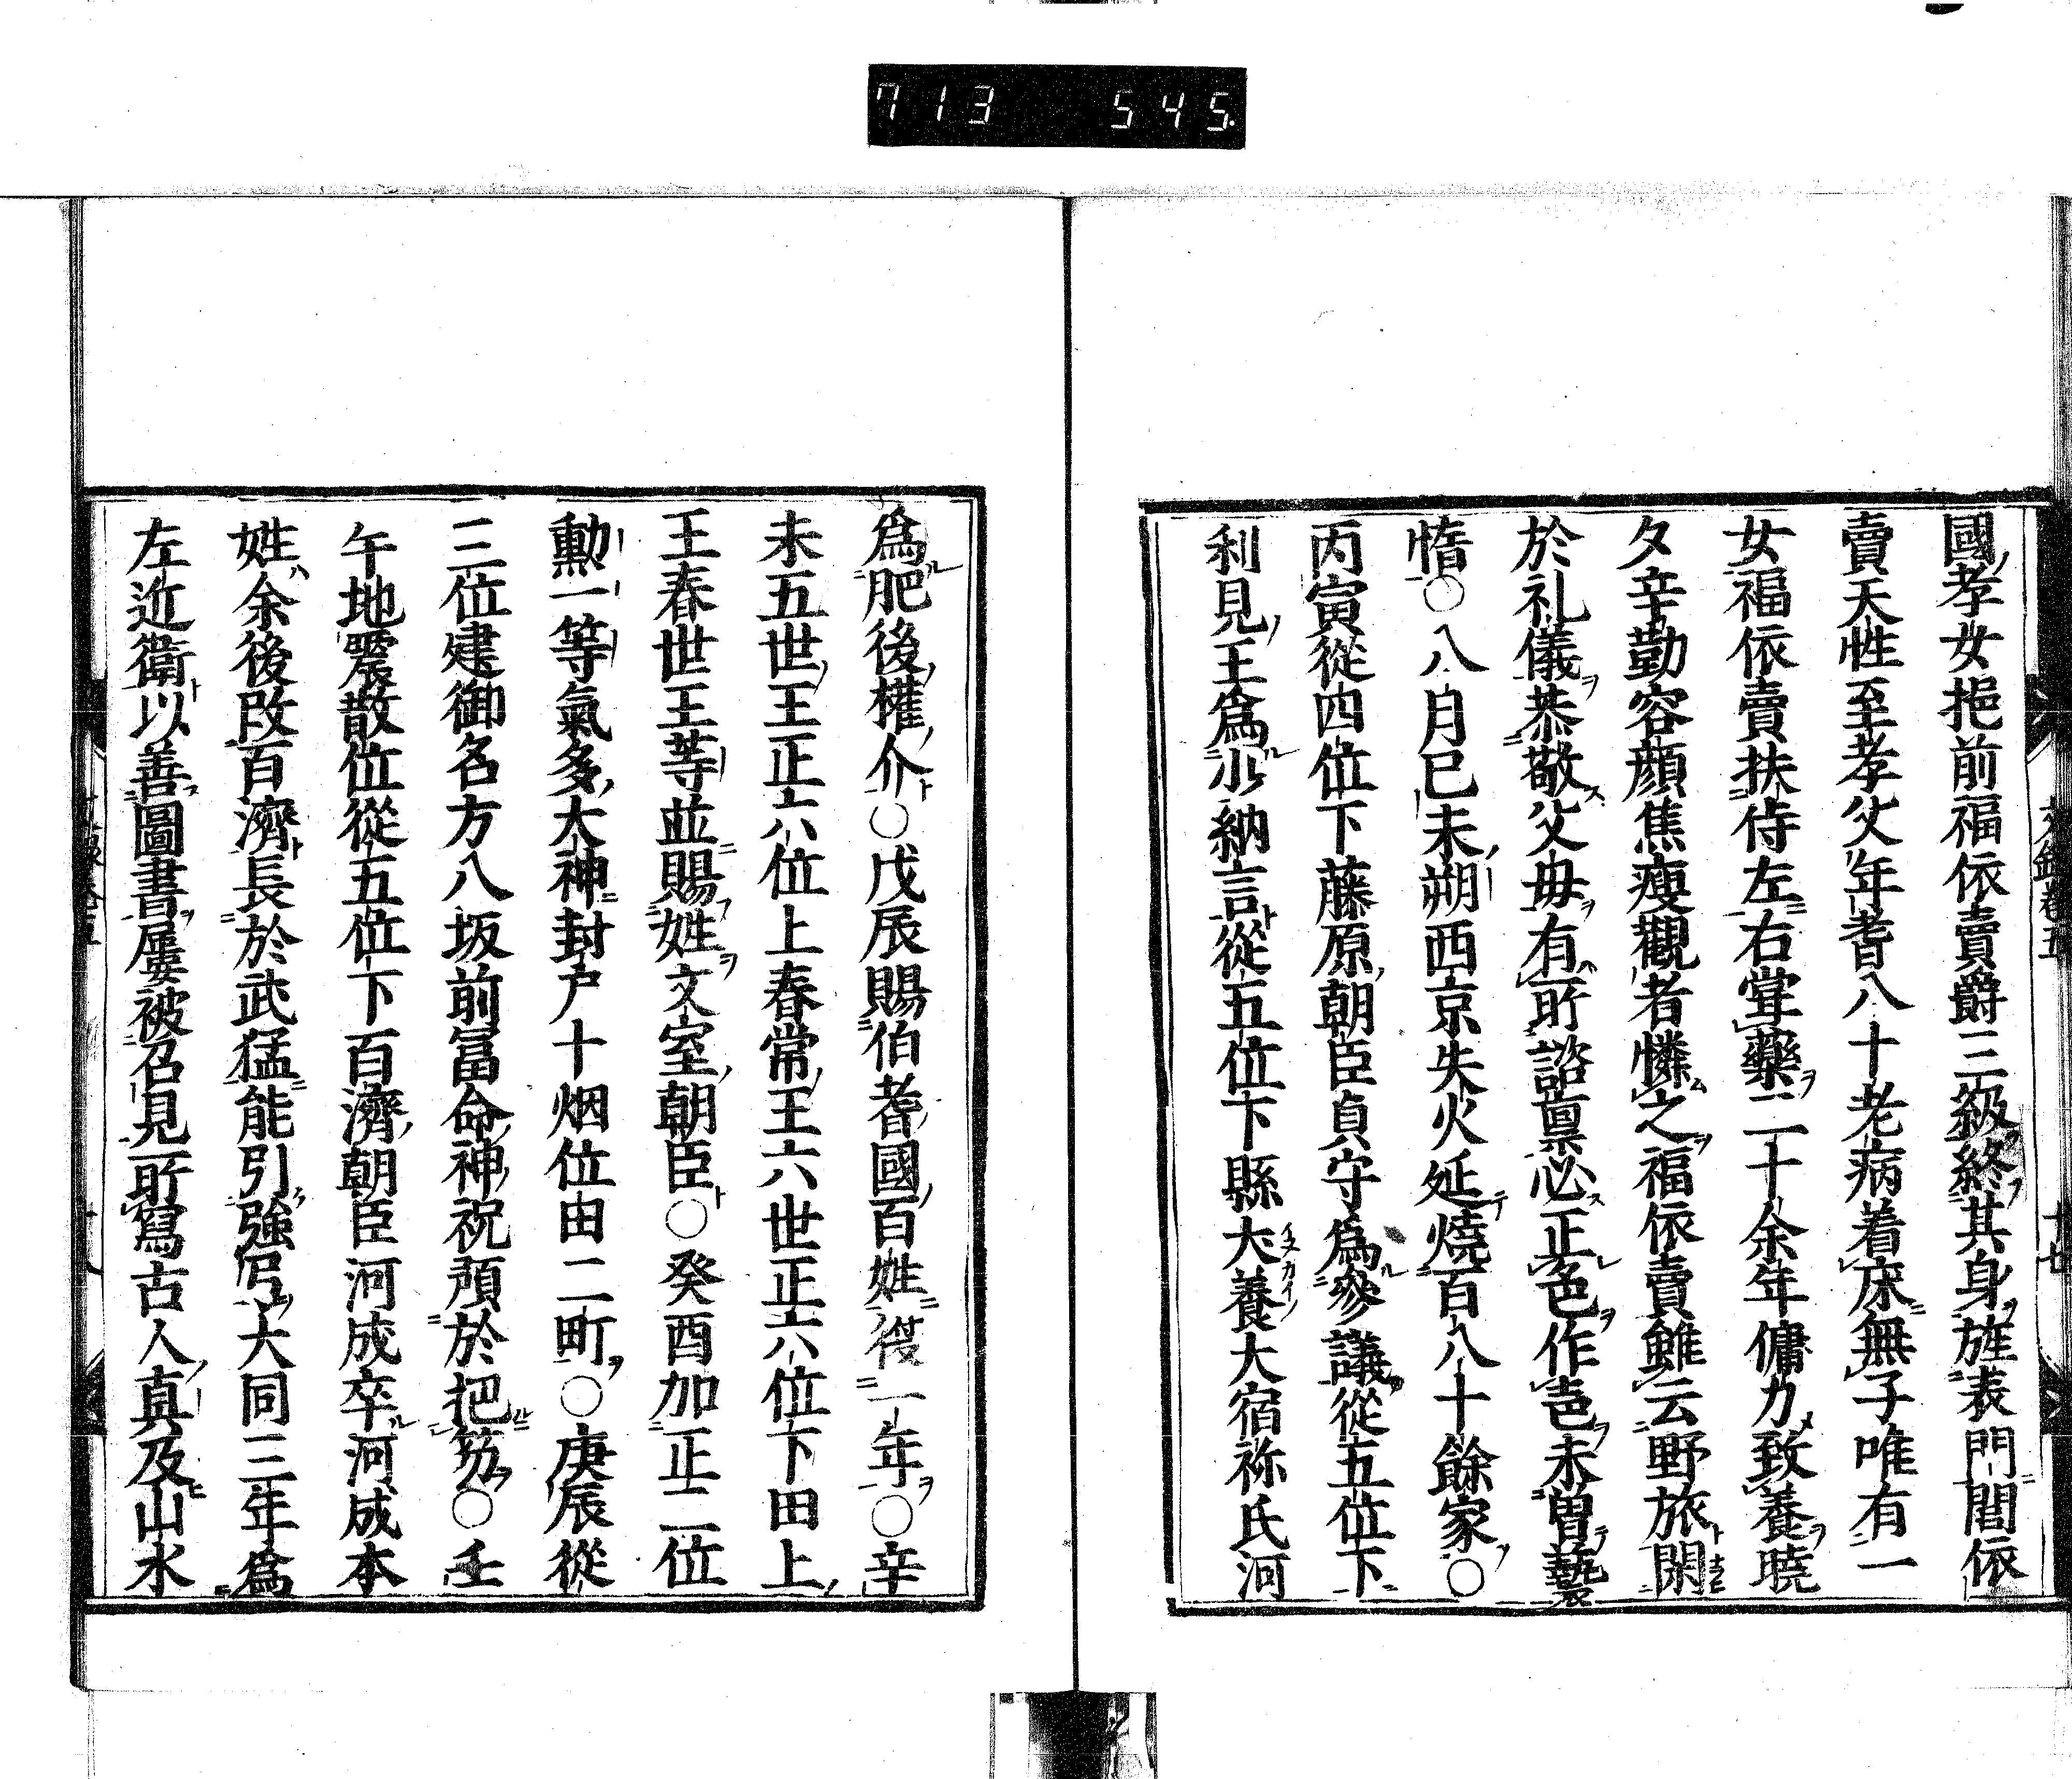 713 545
國孝女挹前福依賣爵三級終其身旌表門閭依
賣天性至孝父年耆八十老病着床無子唯有一
女福依賣扶侍左右甞藥二十余年傭力致養曉
夕辛勤容顔焦痩觀者憐之福依賣雖云野旅閑
於礼儀恭敬父毋有所諮稟必正色作㐵未曽褻
惰○八月已未朔西京失火延燒百八十餘家○
丙寅從四位下藤原朝臣貞守爲參議從五位下
利見王爲少納言從五位下縣犬養大宿祢氏河
爲肥後權介○戊辰賜伯耆國百姓復一年○辛
未五世王正六位上春常王六世正六位下田上
王春世王等並賜姓文室朝臣○癸酉加正二位
勳一等氣多大神封戸十烟位田二町○庚辰從
三位建御名方八坂前冨命神祝預於把笏○壬
午地震散位從五位下百濟朝臣河成卒河成本
姓余後改百濟長於武猛能引強弓大同三年爲
左近衛以善圖書屢被召見所寫古人真及山水